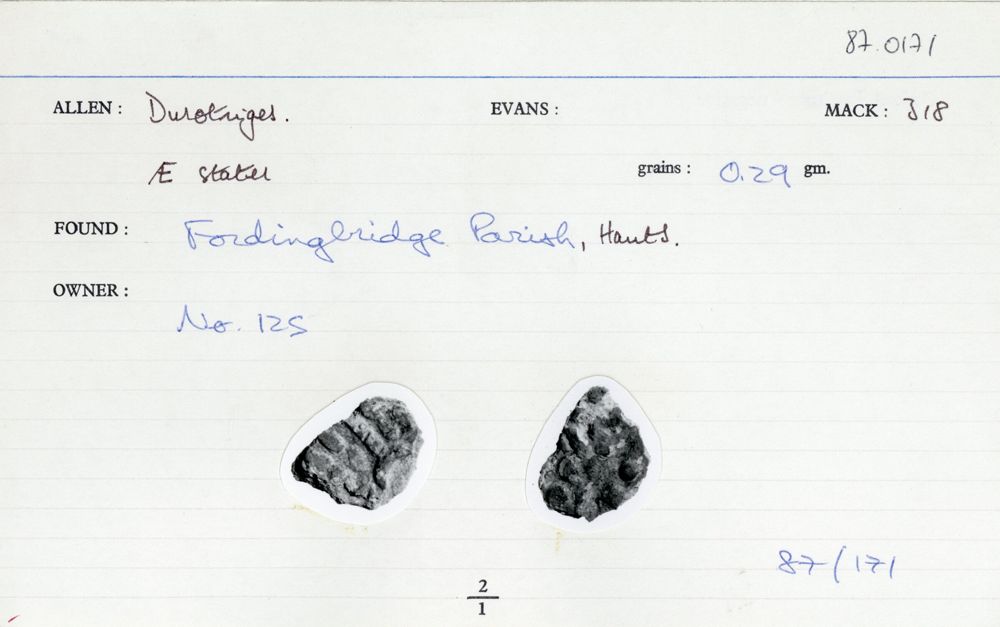 87.0171
ALLEN : Durotriges. EVANS : MACK : 318
Æ stater grains : 0.29 gm.
FOUND : Fordingbridge Parish, Hants.
OWNER :
No. 125
87/171
2
1